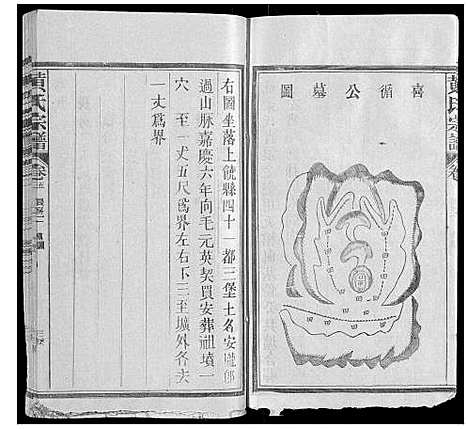 黃氏宗譜
喬循公墓圖
田
田
田
田
田
右圖坐落上饒縣四十一都三堡土名安隴郎
過山脉嘉慶六年向毛元英契買安葬祖墳一
穴 至一丈五尺爲界左右下三至壙外各去
一丈爲界
黃氏宗譜
卷